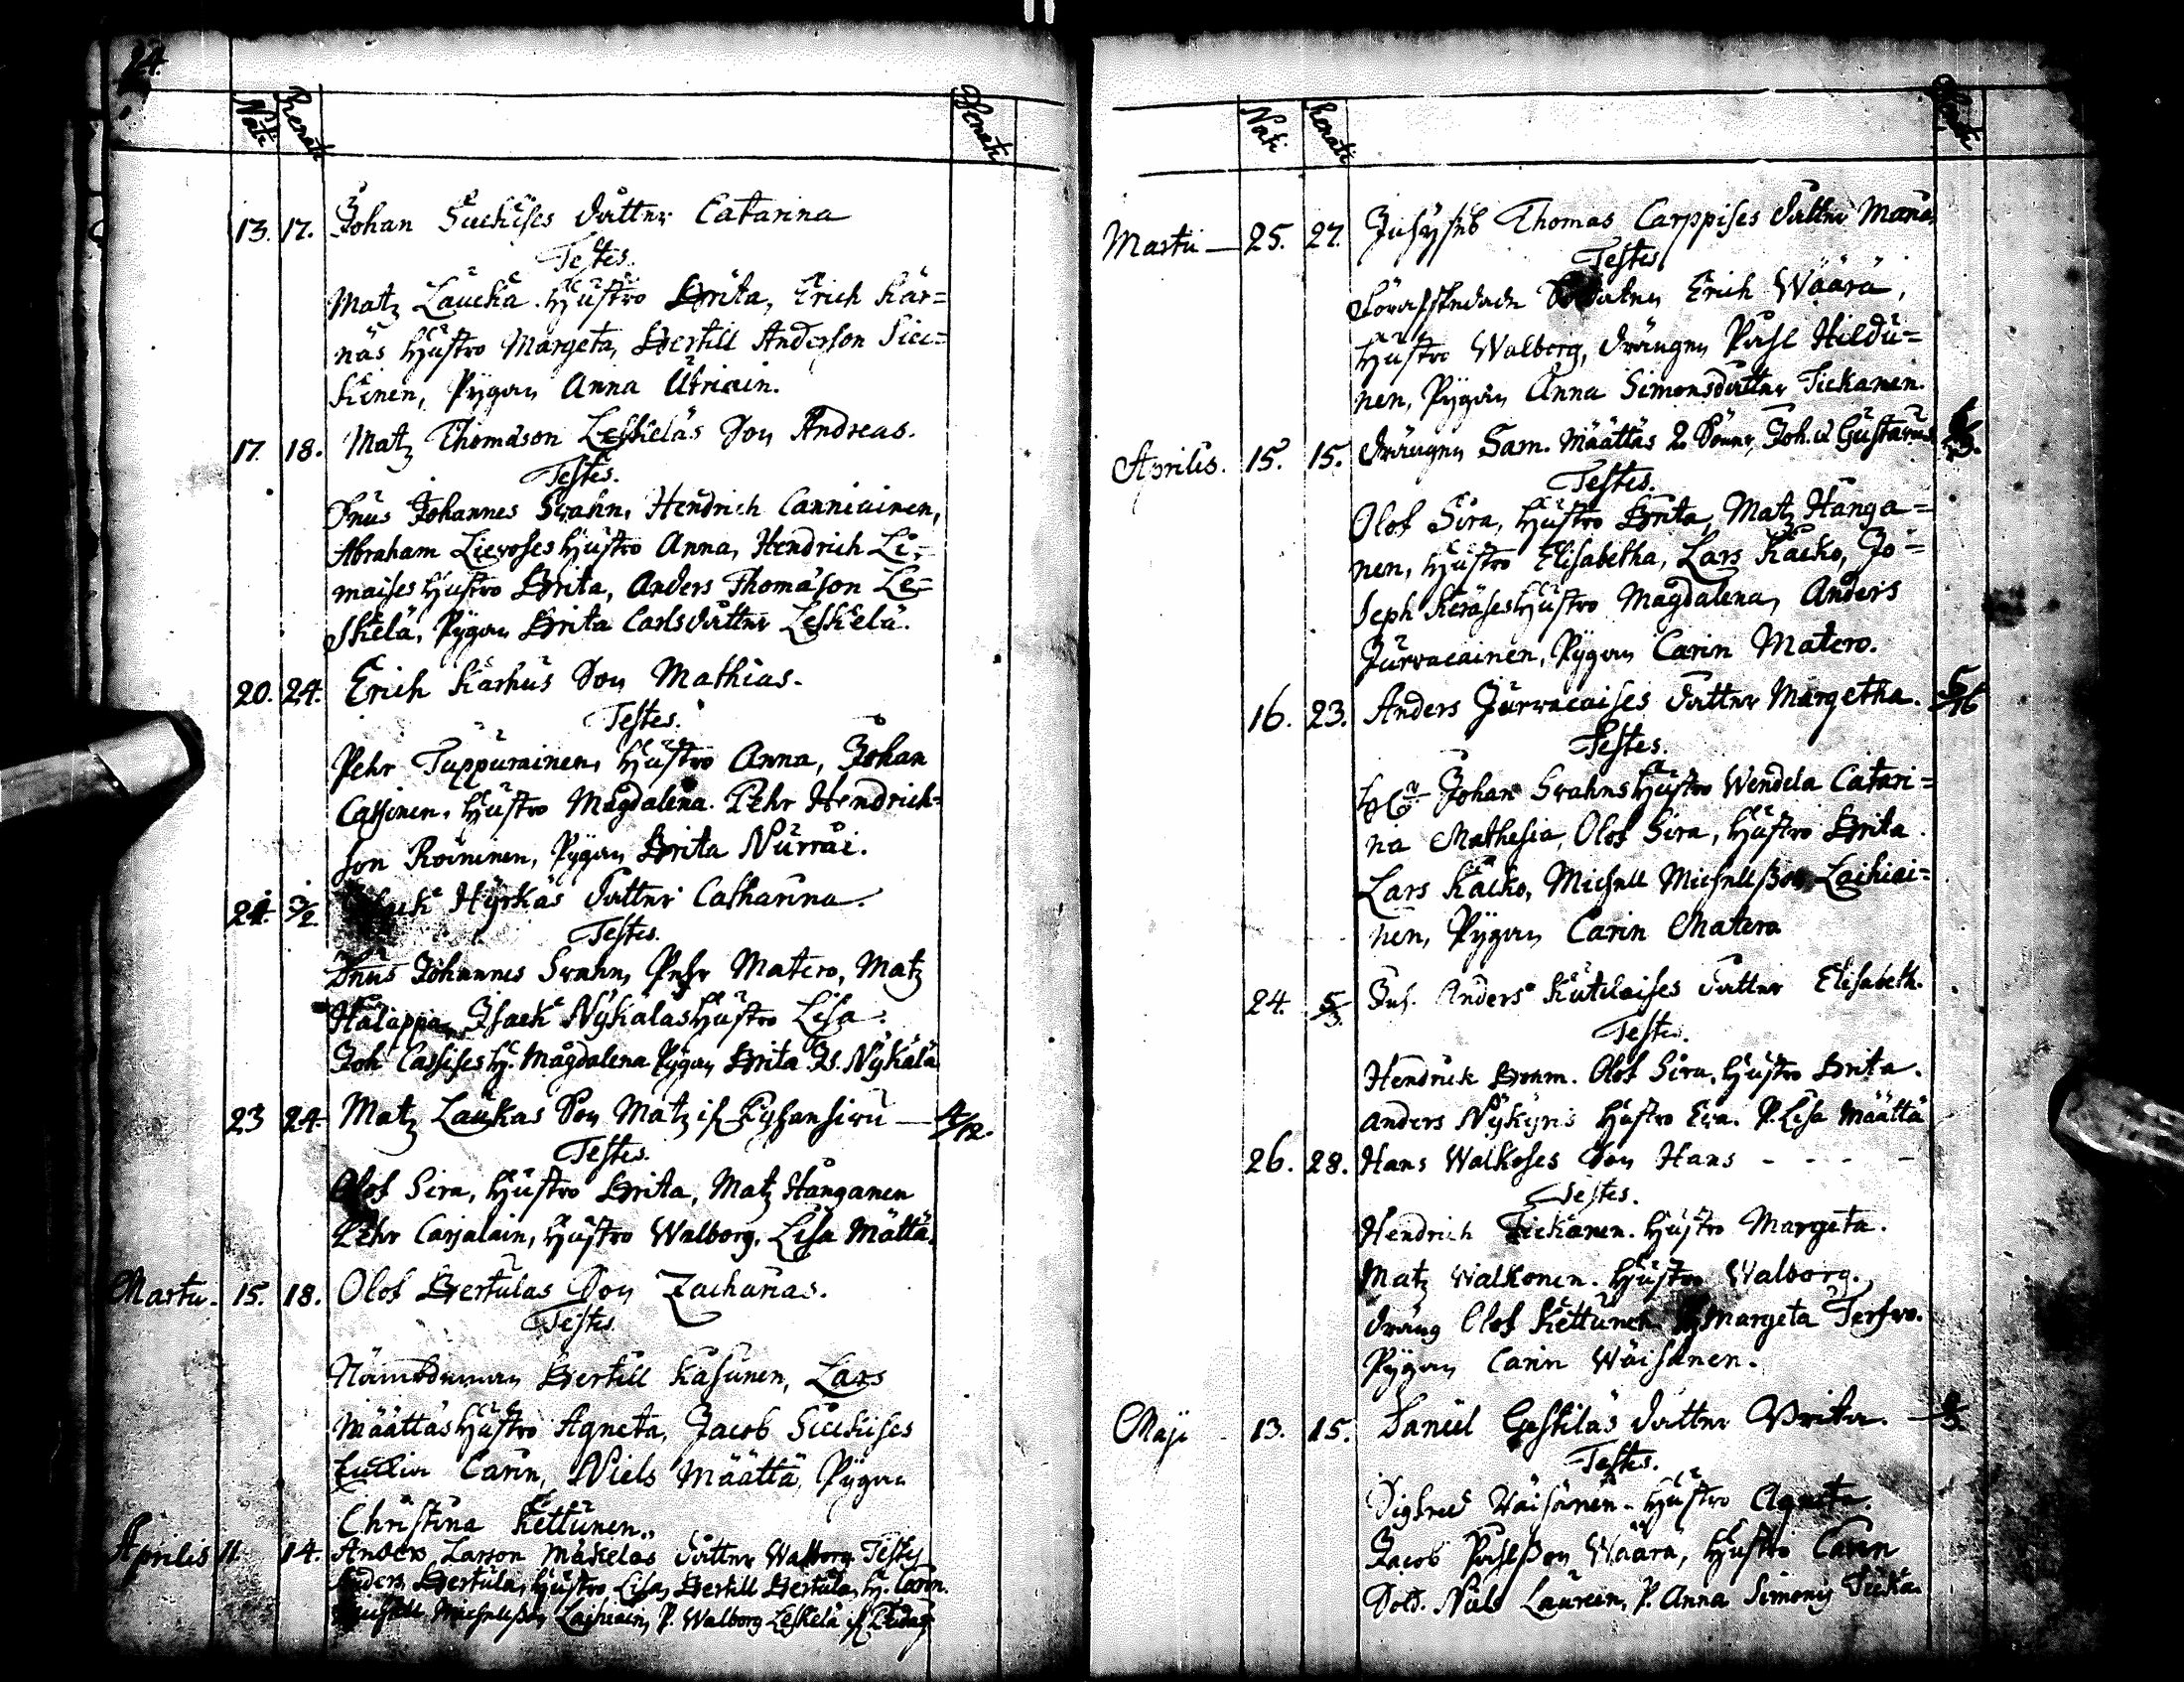 24.
Nati Renati Denati
13. 17. Johan Suckises dotter Catarina
Testes.
Matz Laucka. Hustro Brita, Erich Kär=
näs Hustro Margeta, Bertill Anderson Sic=
kinen, Pygan Anna Utriain.
17. 18. Matz Thomason Leskeläs Son Andreas.
Testes.
Dnus Johannes Svahn, Hendrich Canniainen,
Abraham Lievoses Hustro Anna, Hendrich Li=
maises Hustro Brita, Anders Thomason Le=
skelä, Pygan Brita Carlsdotter Leskelä.
20. 24. Erich Karhus Son Mathias.
Testes.
Pehr Tuppurainen, Hustro Anna, Johan
Cassinen, Hustro Magdalena. Pehr Hendrich=
son Roininen, Pygan Brita Nurrai.
24. 3/2 Hyrkäs dotter Catharina.
Testes.
Dnus Johannes Svahn, Pehr Matero, Matz
Halappa, Isack Nykäläs Hustro Lisa.
Joh Cassises H. Magdalena Pygan Brita Is. Nykälä
23 24. Matz Laukas Son Matz 4/12.
Testes.
Olof Sira, Hustro Brita, Matz Hanganen
Pehr Carjalain, Hustro Walborg, Lisa Mättä.
Martii. 15. 18. Olof Bertulas Son Zacharias.
Testes
Nämdeman Bertill Kasunen, Lars
Määttäs Hustro Agneta, Jacob Suckises
Carin, Niels Määttä, Pygan
Christina Kettunen.
Aprilis 11. 14. Anders Larson Mäkeläs dotter Walborg Testes
Anders Bertula, Hustro Lisa, Bertill Bertula, H. Carin.
Michellsson Laihiain, P. Walborg Leskelä
Nati Renati Denati
Martii — 25. 27. Thomas Carppises dotter Maria
Testes
Soldaten Erich Wäärä,
Hustro Walborg, drängen Påhl Hildu=
nen, Pygan Anna Simonsdotter Tickanen.
Aprilis. 15. 15. drängen Sam. Määttäs 2 Söner, Joh. & Gustavus
Testes.
Olof Sira, Hustro Brita, Matz Hanga=
nen, Hustro Elisabetha, Lars Kacko, Jo=
seph Keräses Hustro Magdalena, Anders
Jurvacainen, Pygan Carin Matero.
16. 23. Anders Jurvacaises dotter Margetha. 5/16
Testes.
Johan Svahns Hustro Wendela Catari=
na Mathesia, Olof Sira, Hustro Brita.
Lars Kacko, Michell Michellsson Laihiai=
nen, Pygan Carin Matero
24. 5/3. Anders Kutilaises dotter Elisabeth.
Testes.
Hendrick Olof Sira, Hustro Brita.
Anders Nykyris Hustro Eva. P. Lisa Määttä
26. 28. Hans Walkoses Son Hans - - - -
Testes.
Hendrich Tickanen. Hustro Margeta.
Matz Walkonen. Hustro Walborg.
dräng Olof Kettunen Margeta Terfvo.
Pygan Carin Wäisänen.
Maji 13. 15. Daniel Gestiläs dotter Brita.
Testes.
Sigfred Wäisänen. Hustro Agneta.
Jacob Påhlsson Wäära, Hustro Carin
Sold. Nils Laureen, P. Anna Simons Ticka